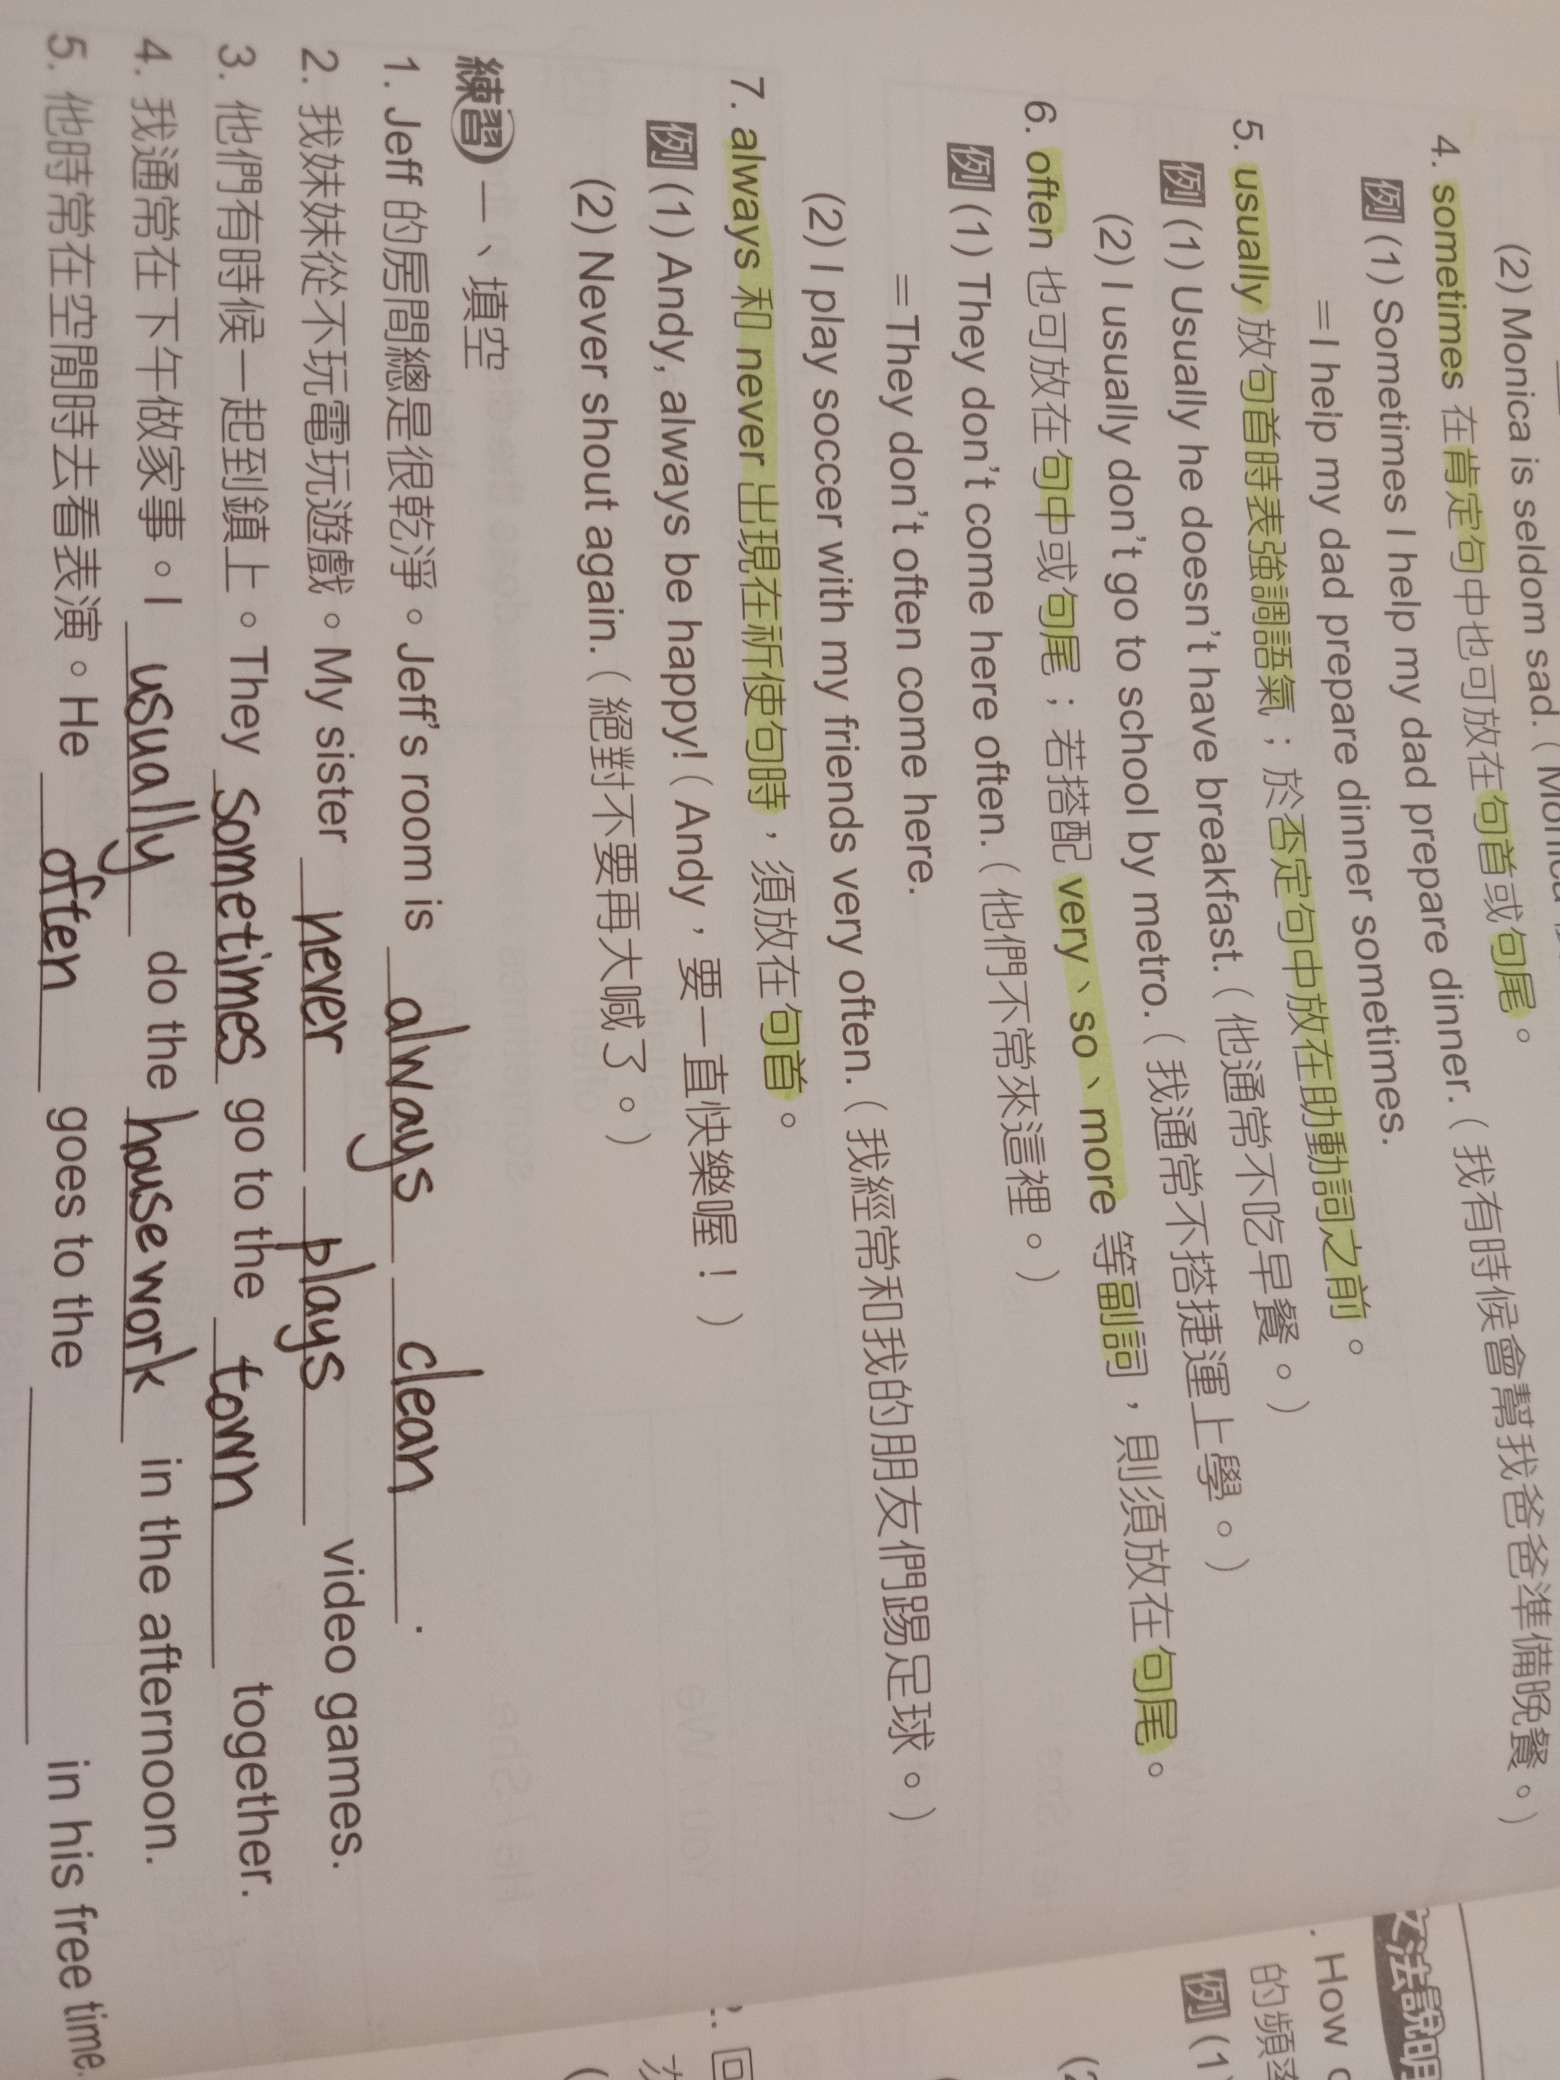 (2) Monica is seldom sad.（Monica
4. sometimes 在肯定句中也可放在句首或句尾。
例 (1) Sometimes I help my dad prepare dinner.（我有時候會幫我爸爸準備晚餐。）
＝I heip my dad prepare dinner sometimes.
5. usually 放句首時表強調語氣；於否定句中放在助動詞之前。
例 (1) Usually he doesn't have breakfast.（他通常不吃早餐。）
(2) I usually don't go to school by metro.（我通常不搭捷運上學。）
6. often 也可放在句中或句尾；若搭配 very、so、more 等副詞，則須放在句尾。
例 (1) They don't come here often.（他們不常來這裡。）
＝They don't often come here.
(2) I play soccer with my friends very often.（我經常和我的朋友們踢足球。）
7. always 和 never 出現在祈使句時，須放在句首。
例 (1) Andy, always be happy!（Andy，要一直快樂喔！）
(2) Never shout again.（絕對不要再大喊了。）
練習 一、填空
1. Jeff 的房間總是很乾淨。Jeff's room is always clean.
2. 我妹妹從不玩電玩遊戲。My sister never plays video games.
3. 他們有時候一起到鎮上。They sometimes go to the town together.
4. 我通常在下午做家事。I usually do the house work in the afternoon.
5. 他時常在空閒時去看表演。He often goes to the in his free time.
文法說明
. How
的頻率
例 (1)
(2
2. 回